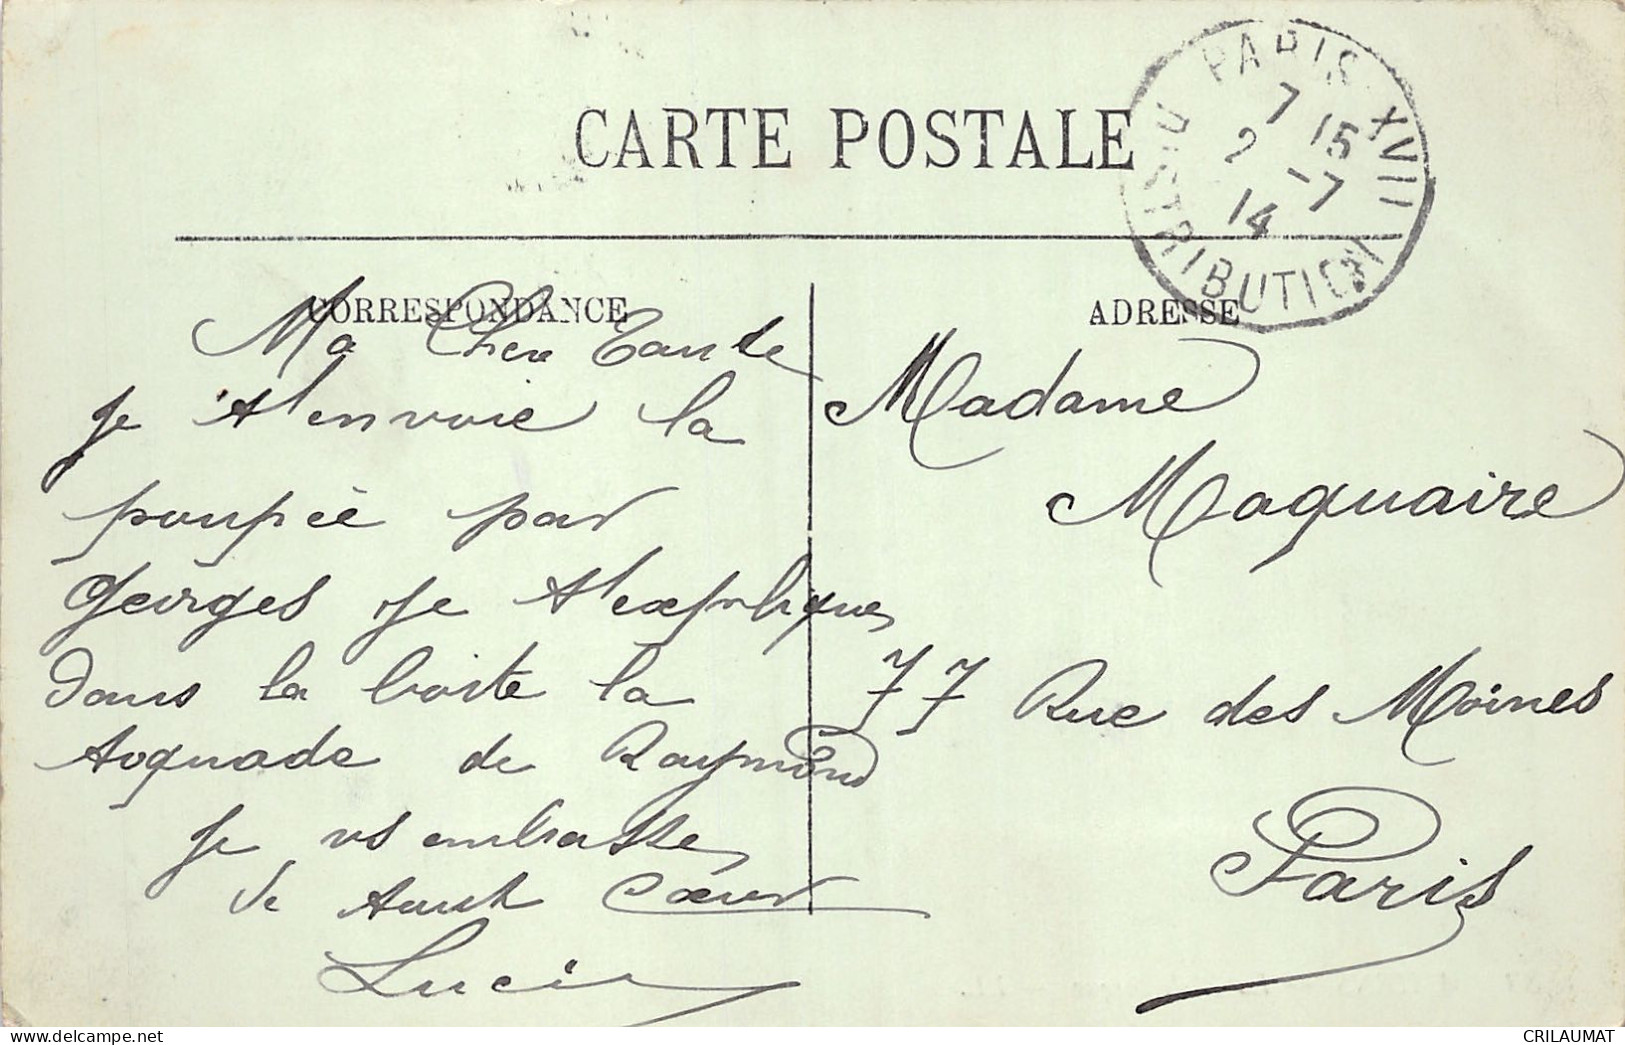 CARTE POSTALE
PARIS XVII
DISTRIBUTION
7 15
2 -7
14
CORRESPONDANCE
ADRESSE
Ma Chere Tante
je t'envoie la
poupée par
Georges je t'expliques
dans la boite la
de Raymond
je vs embrasse
de tout Cœur
Lucie
Madame
Maquaire
77 Rue des Moines
Paris
www.delcampe.net
CRILAUMAT